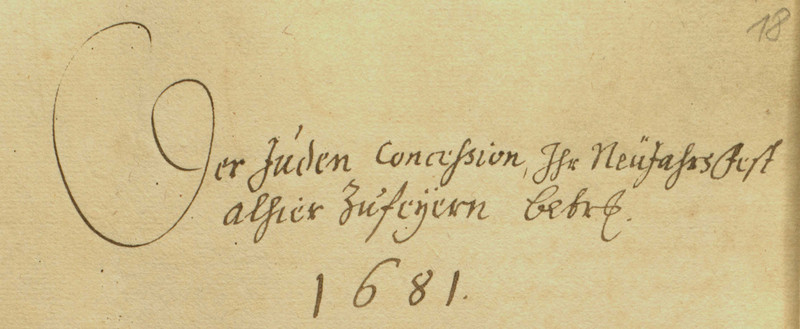 18
Der Juden Concession, Ihr NeüJahrsFest
alhier Zufeÿern betr.
1681.